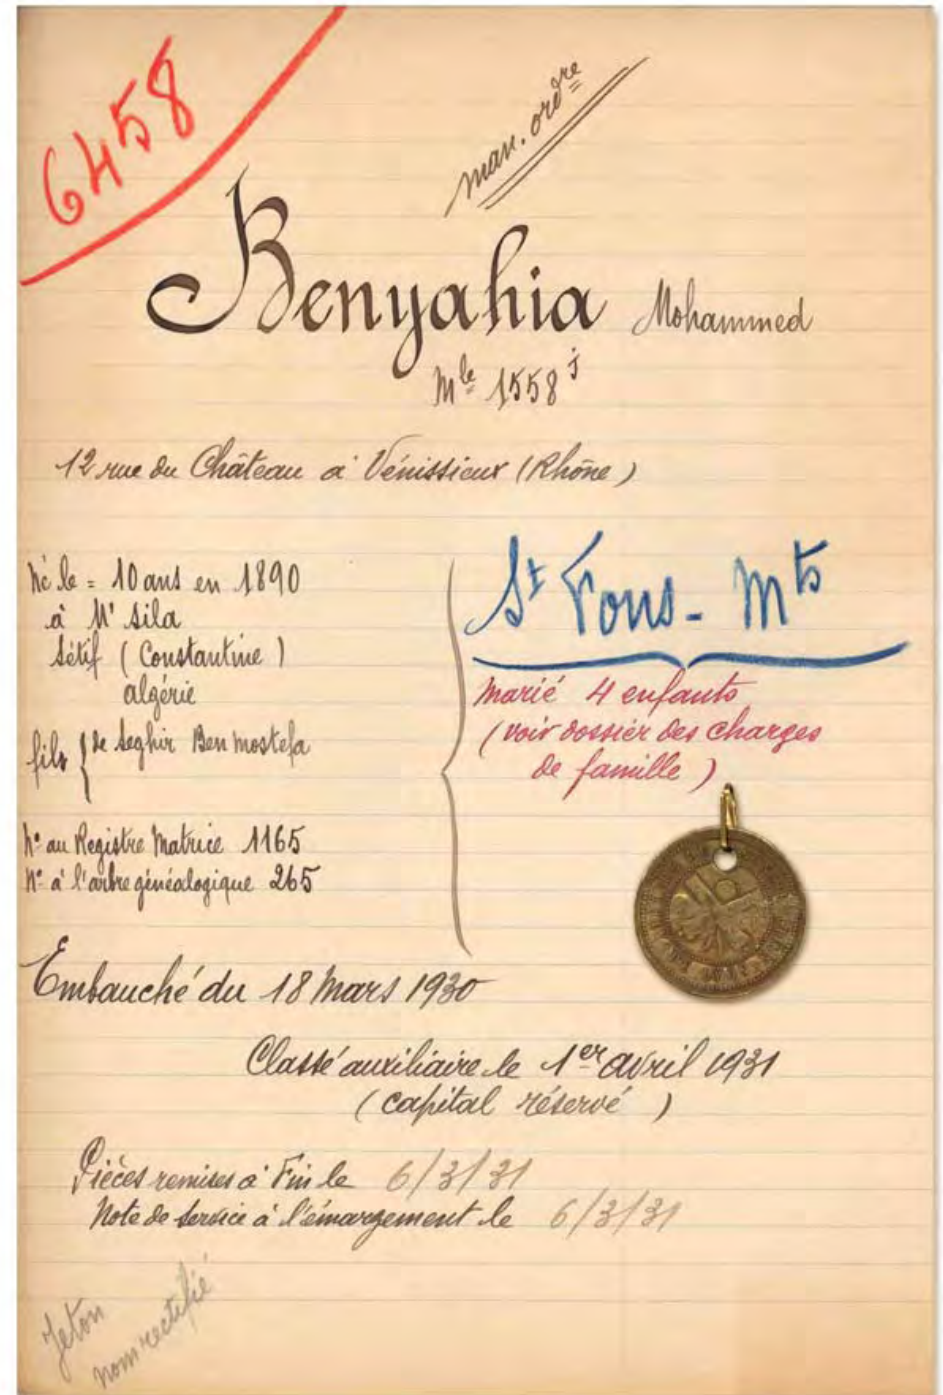 6458
man. ord^re
Benyahia Mohammed
M^le 1558 ^j
12 rue du Château à Vénissieux (Rhône)
Né le = 10 ans en 1890
à M'sila
Sétif (Constantine)
algérie
fils { de Seghir Ben Mostefa
N° au Registre Matrice 1165
N° à l'arbre généalogique 265
S^t Fons - M^ts
marié 4 enfants
(voir dossier des charges
de famille)
Embauché du 18 Mars 1930
Classé auxiliaire le 1^er avril 1931
(capital réservé)
Pièces remises à Fin le 6/3/31
Note de service à l'émargement le 6/3/31
Jeton
nom rectifié